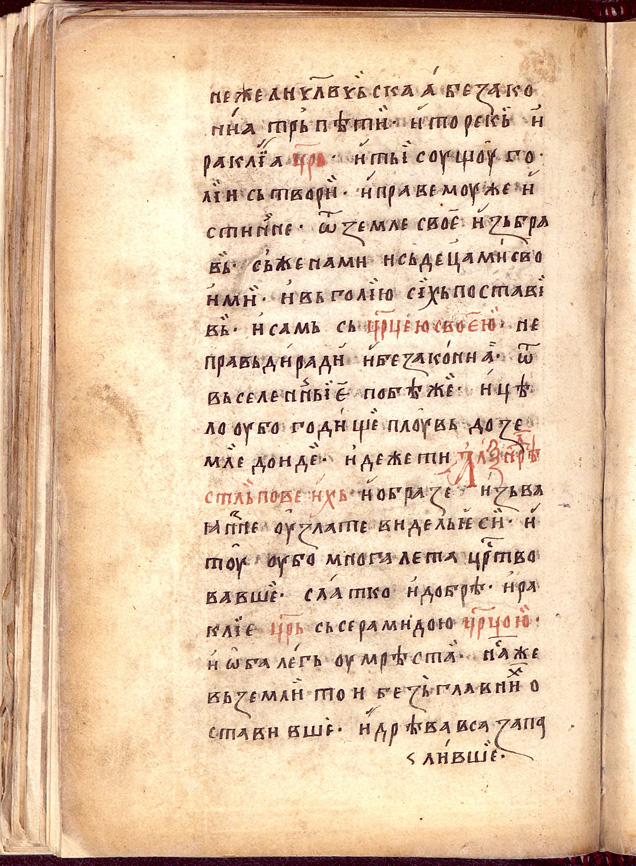 нежелиꙋ҃лвꙋвьска а҆ безако
нїна трьпѣти· и҆то рекь и҆
раклїа цр҃ь· и҆тьі соушоу бо·
лїи сьтвори· и҆правемоуже и҆
стинне· ѿ земле своє и҆збра
вь· сьженами исьдецами сво
ими· ивьголїю сїхьпостави
вь· исамь сь цр҃цею своєю· не
правьдиради ибезаконна· ѿ
вьселенньіє побѣже· ицѣ
ло оубо годище плоувь до зе
мле донде· идежети
стльпове ихь· иобразе изьва
ꙗнне оу злате видельєси· и
тоу оубо многа лета цр҃тво
вавше· слатко идобрѣ· ира
клїе цр҃ь сьсерамидою цр҃цою·
и ѡбалегь оумрѣста· наже
вьземли тои безьглавних о
ставивше· идрѣвавса запа
лившe·